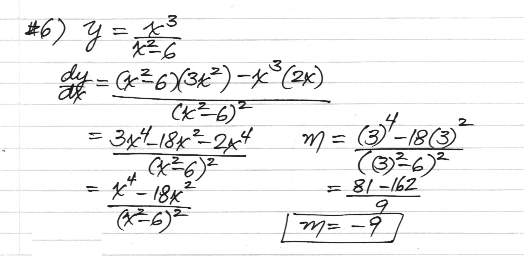 #6) y = x³/(x²-6)
dy/dx = ((x²-6)(3x²) - x³(2x))/(x²-6)²
= (3x⁴-18x²-2x⁴)/(x²-6)²
= (x⁴-18x²)/(x²-6)²
m = ((3)⁴-18(3)²)/((3)²-6)²
= (81-162)/9
m = -9